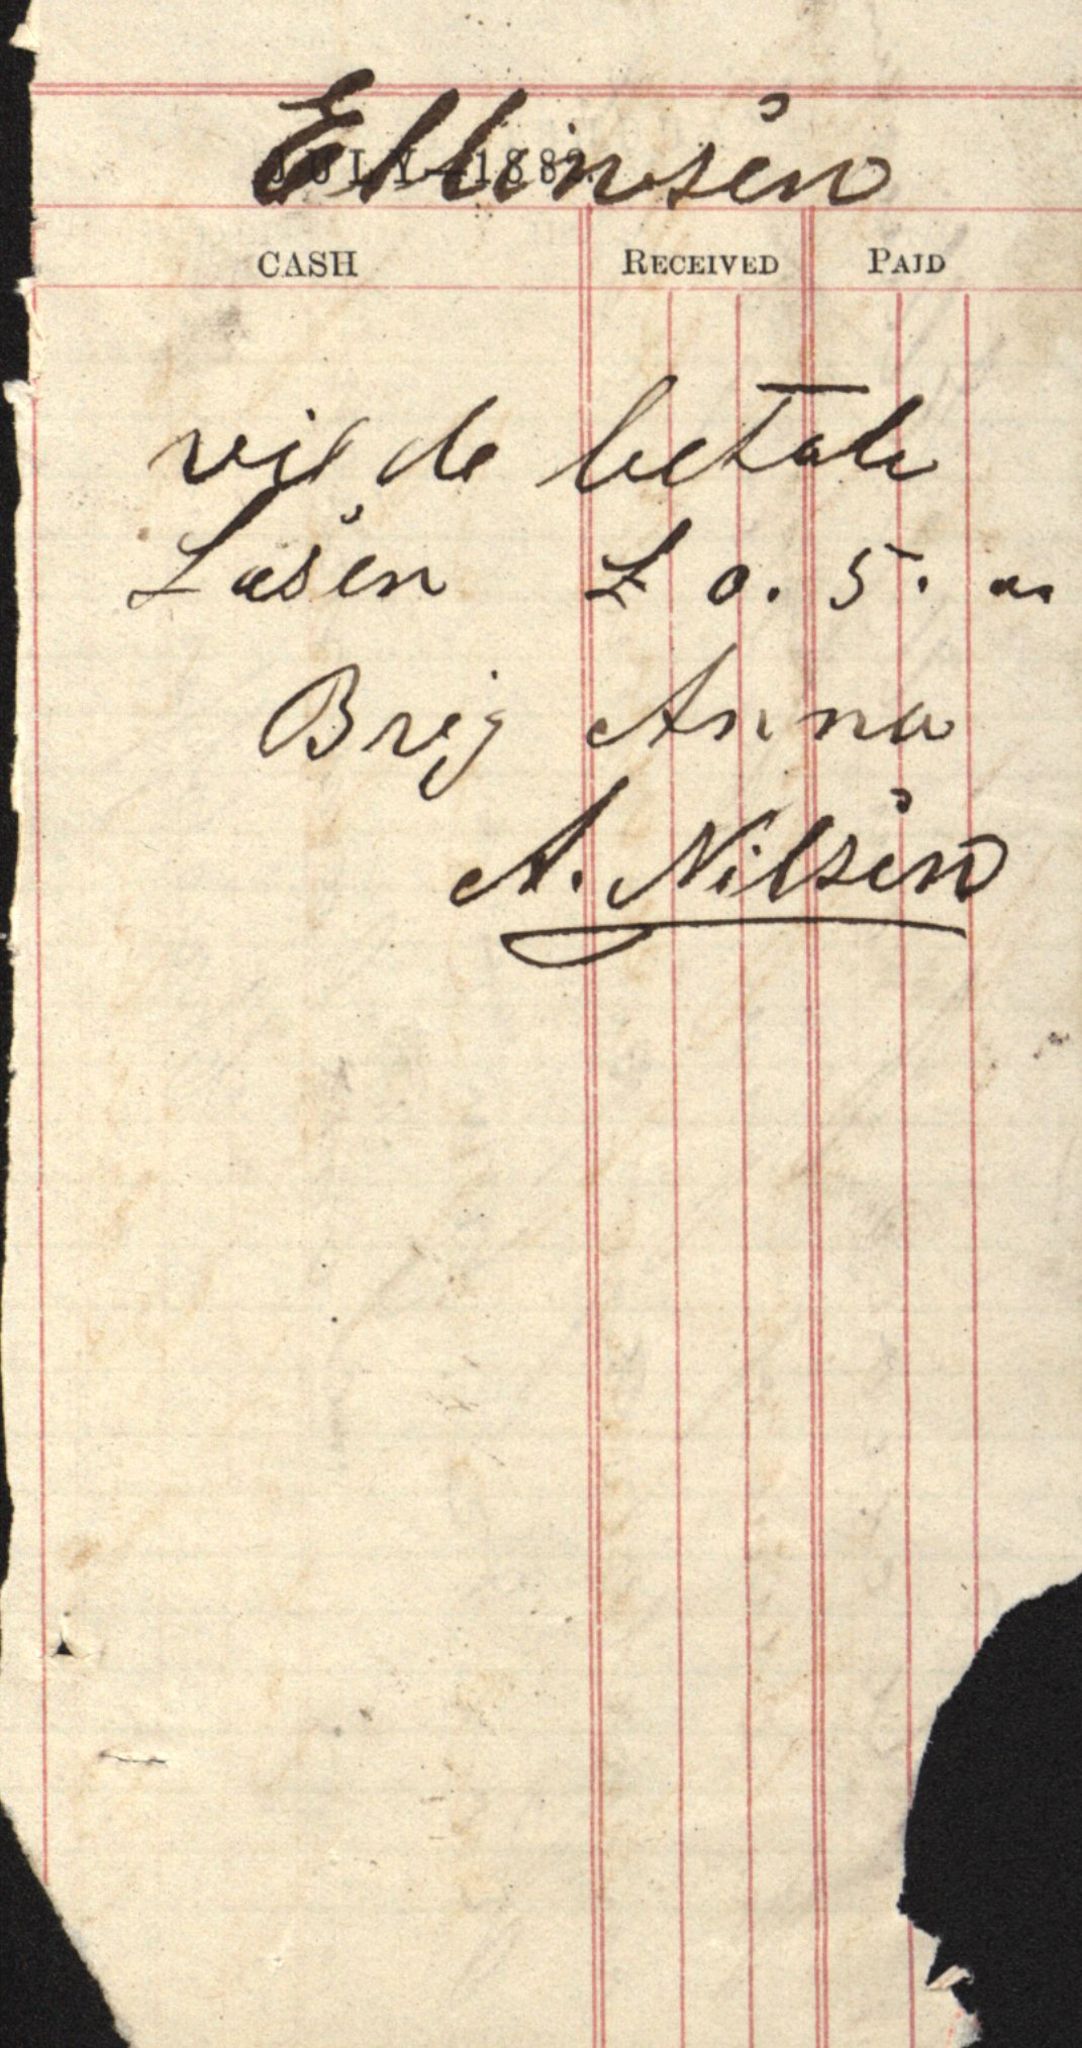 Ellinsen
JULY—1882.
CASH RECEIVED PAID
vil de betale
Losen £ 0. 5. 0.
Brig Anna
A. Nilsen